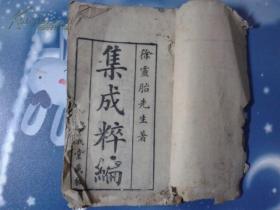 徐靈胎先生著
集成粹編